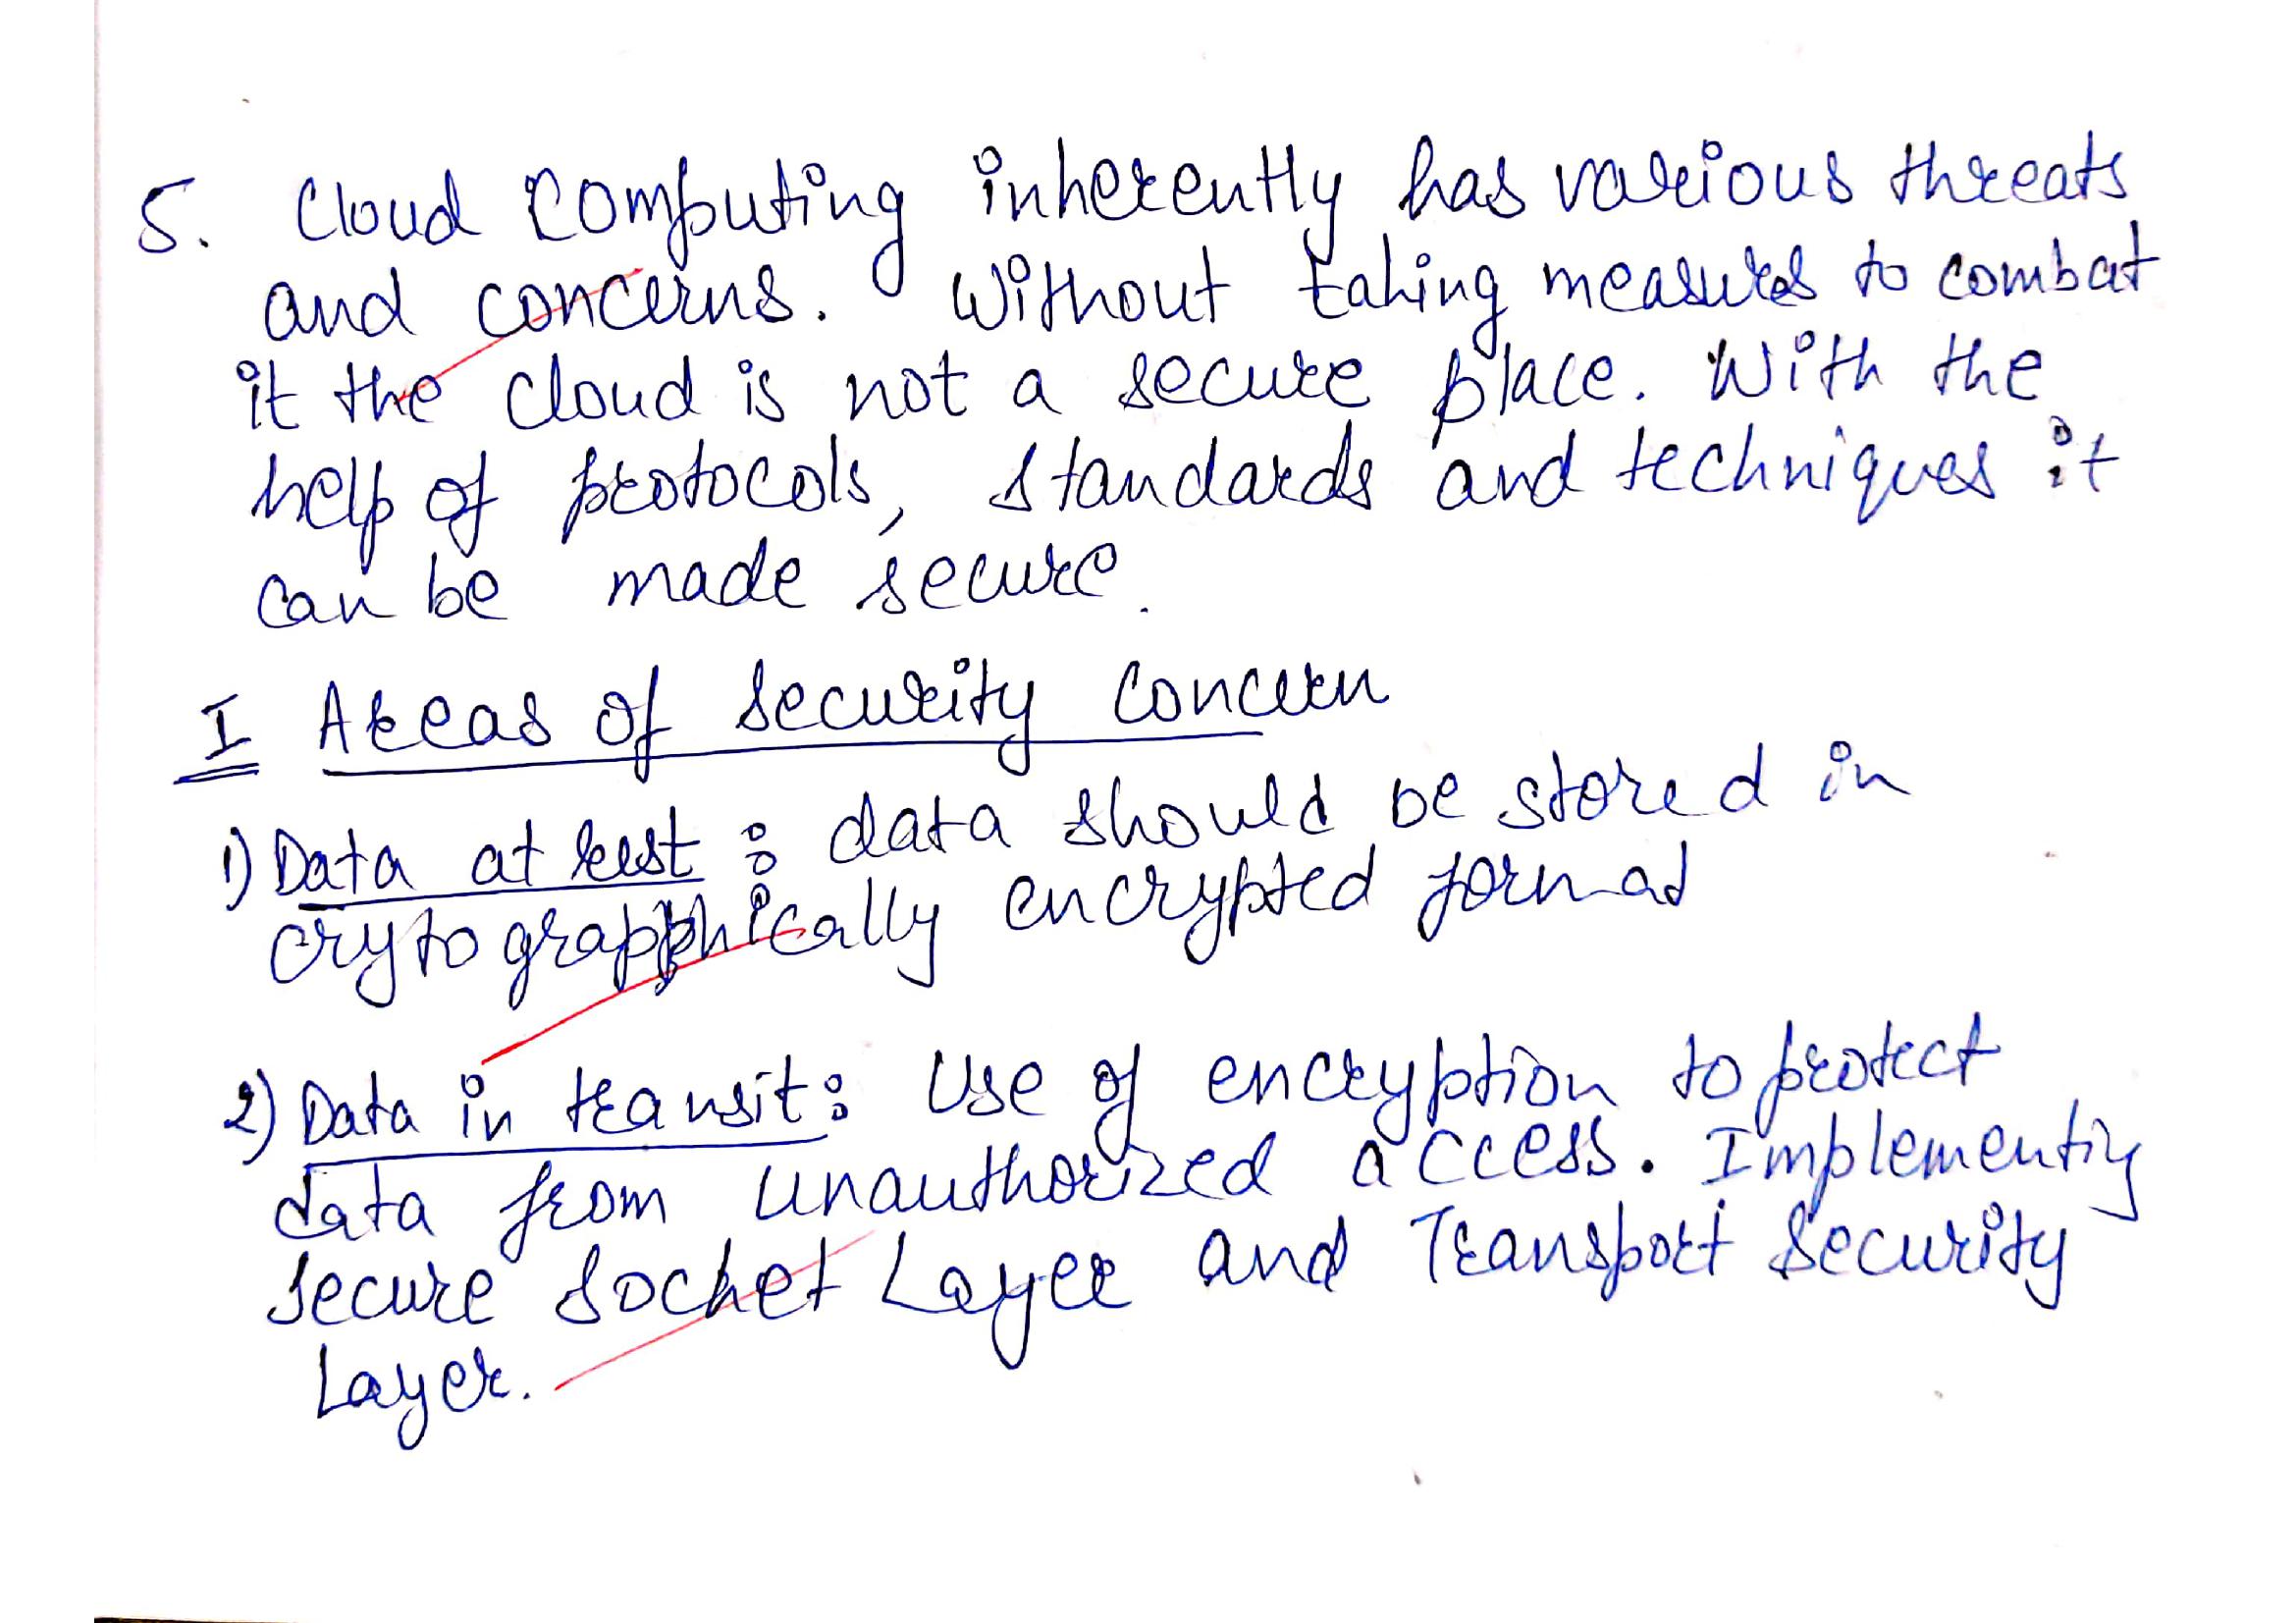 5. Cloud Computing inherently has various threats
and concerns. Without taking measures to combat
it the cloud is not a secure place. With the
help of protocols, standards and techniques it
can be made secure.
I Areas of security concern
1) Data at rest : data should be stored in
crytographically encrypted format
2) Data in transit : Use of encryption to protect
data from unauthorized access. Implementing
secure socket Layer and Transport security
Layer.